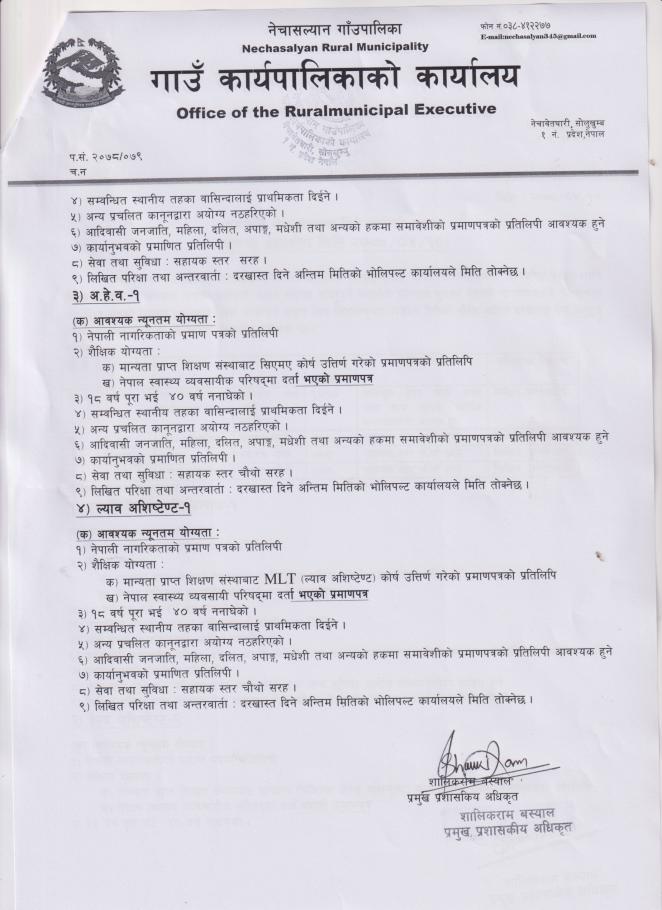 नेचासल्यान गाउँपालिका
Nechasalyan Rural Municipality
फोन नं.०३८-४१२२७७
E-mail:nechasalyan345@gmail.com
गाउँ कार्यपालिकाको कार्यालय
Office of the Ruralmunicipal Executive
नेचाबेतघारी, सोलुखुम्ब
१ नं. प्रदेश,नेपाल
प.सं. २०७८/०७९
च.न
४) सम्बन्धित स्थानीय तहका वासिन्दालाई प्राथमिकता दिईने ।
५) अन्य प्रचलित कानूनद्वारा अयोग्य नठहरिएको ।
६) आदिवासी जनजाति, महिला, दलित, अपाङ्ग, मधेशी तथा अन्यको हकमा समावेशीको प्रमाणपत्रको प्रतिलिपी आवश्यक हुने
७) कार्यानुभवको प्रमाणित प्रतिलिपी ।
८) सेवा तथा सुविधा : सहायक स्तर सरह ।
९) लिखित परिक्षा तथा अन्तरवार्ता : दरखास्त दिने अन्तिम मितिको भोलिपल्ट कार्यालयले मिति तोक्नेछ ।
३) अ.हे.व.-१
(क) आवश्यक न्यूनतम योग्यता :
१) नेपाली नागरिकताको प्रमाण पत्रको प्रतिलिपी
२) शैक्षिक योग्यता :
क) मान्यता प्राप्त शिक्षण संस्थाबाट सिएमए कोर्ष उत्तिर्ण गरेको प्रमाणपत्रको प्रतिलिपि
ख) नेपाल स्वास्थ्य व्यवसायीक परिषद्‌मा दर्ता भएको प्रमाणपत्र
३) १८ वर्ष पूरा भई ४० वर्ष ननाघेको ।
४) सम्बन्धित स्थानीय तहका वासिन्दालाई प्राथमिकता दिईने ।
५) अन्य प्रचलित कानूनद्वारा अयोग्य नठहरिएको ।
६) आदिवासी जनजाति, महिला, दलित, अपाङ्ग, मधेशी तथा अन्यको हकमा समावेशीको प्रमाणपत्रको प्रतिलिपी आवश्यक हुने
७) कार्यानुभवको प्रमाणित प्रतिलिपी ।
८) सेवा तथा सुविधा : सहायक स्तर चौथो सरह ।
९) लिखित परिक्षा तथा अन्तरवार्ता : दरखास्त दिने अन्तिम मितिको भोलिपल्ट कार्यालयले मिति तोक्नेछ ।
४) ल्याव अशिष्टेण्ट-१
(क) आवश्यक न्यूनतम योग्यता :
१) नेपाली नागरिकताको प्रमाण पत्रको प्रतिलिपी
२) शैक्षिक योग्यता :
क) मान्यता प्राप्त शिक्षण संस्थाबाट MLT (ल्याव अशिष्टेण्ट) कोर्ष उत्तिर्ण गरेको प्रमाणपत्रको प्रतिलिपि
ख) नेपाल स्वास्थ्य व्यवसायी परिषद्‌मा दर्ता भएको प्रमाणपत्र
३) १८ वर्ष पूरा भई ४० वर्ष ननाघेको ।
४) सम्बन्धित स्थानीय तहका वासिन्दालाई प्राथमिकता दिईने ।
५) अन्य प्रचलित कानूनद्वारा अयोग्य नठहरिएको ।
६) आदिवासी जनजाति, महिला, दलित, अपाङ्ग, मधेशी तथा अन्यको हकमा समावेशीको प्रमाणपत्रको प्रतिलिपी आवश्यक हुने
७) कार्यानुभवको प्रमाणित प्रतिलिपी ।
८) सेवा तथा सुविधा : सहायक स्तर चौथो सरह ।
९) लिखित परिक्षा तथा अन्तरवार्ता : दरखास्त दिने अन्तिम मितिको भोलिपल्ट कार्यालयले मिति तोक्नेछ ।
शालिकराम बस्याल
प्रमुख प्रशासकिय अधिकृत
शालिकराम बस्याल
प्रमुख प्रशासकीय अधिकृत